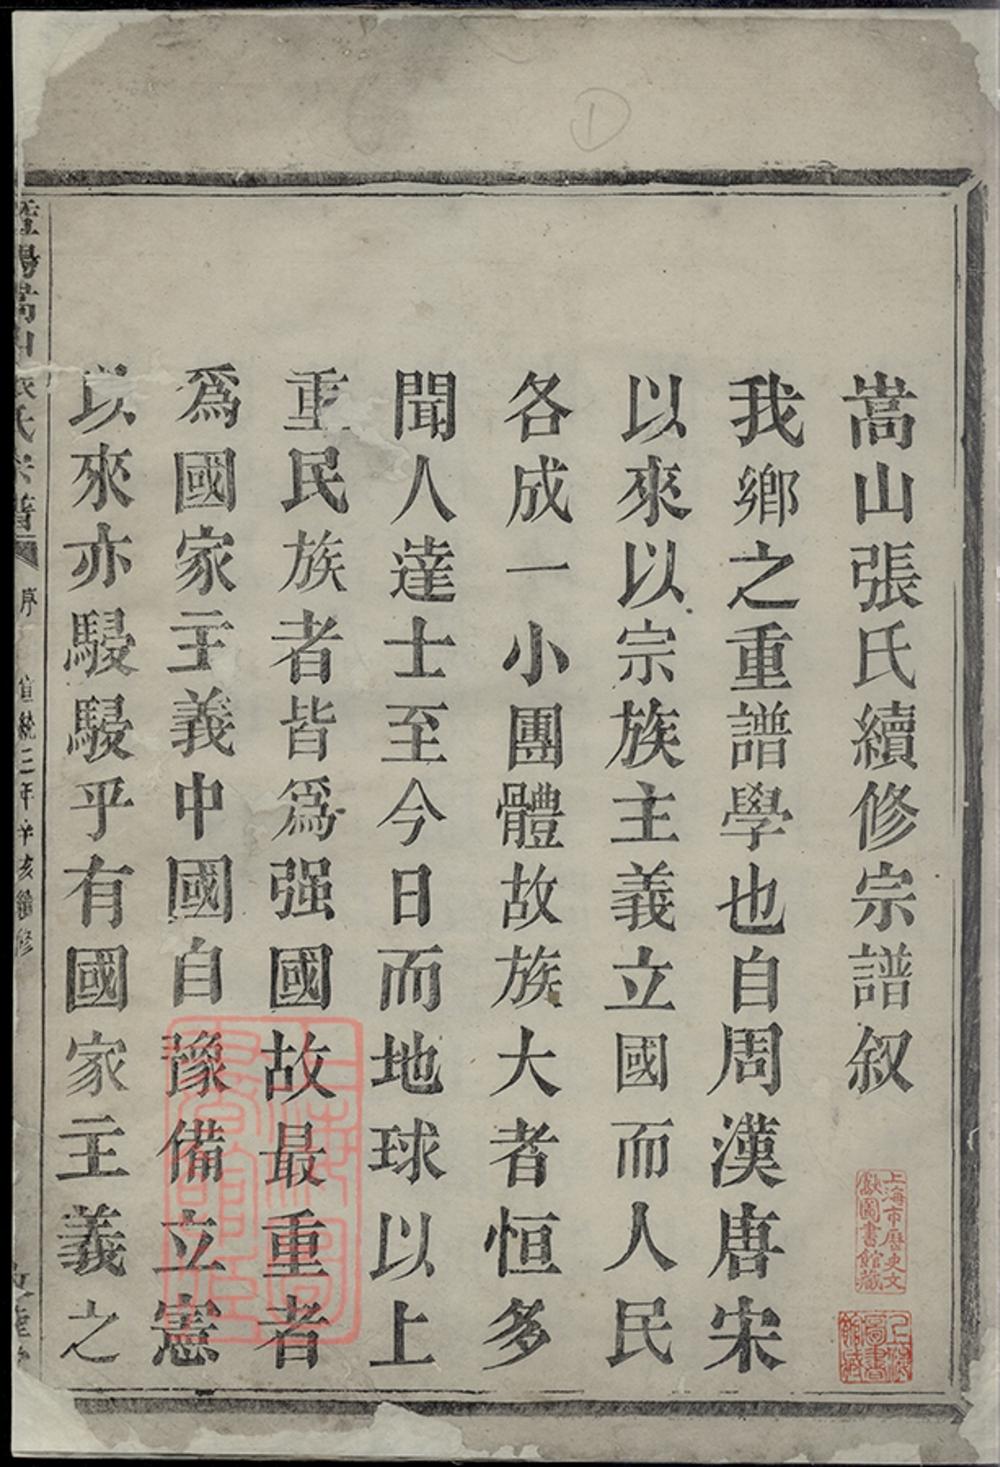 嵩山張氏續修宗譜叙
我鄉之重譜學也自周漢唐宋
以來以宗族主義立國而人民
各成一小團體故族大者恒多
聞人達士至今日而地球以上
重民族者皆爲强國故最重者
爲國家主義中國自豫備立憲
以來亦駸駸乎有國家主義之
陽嵩山張氏宗譜
序
宣統三年辛亥續修
上海市歷史文
獻圖書館藏
上海
圖書
館藏